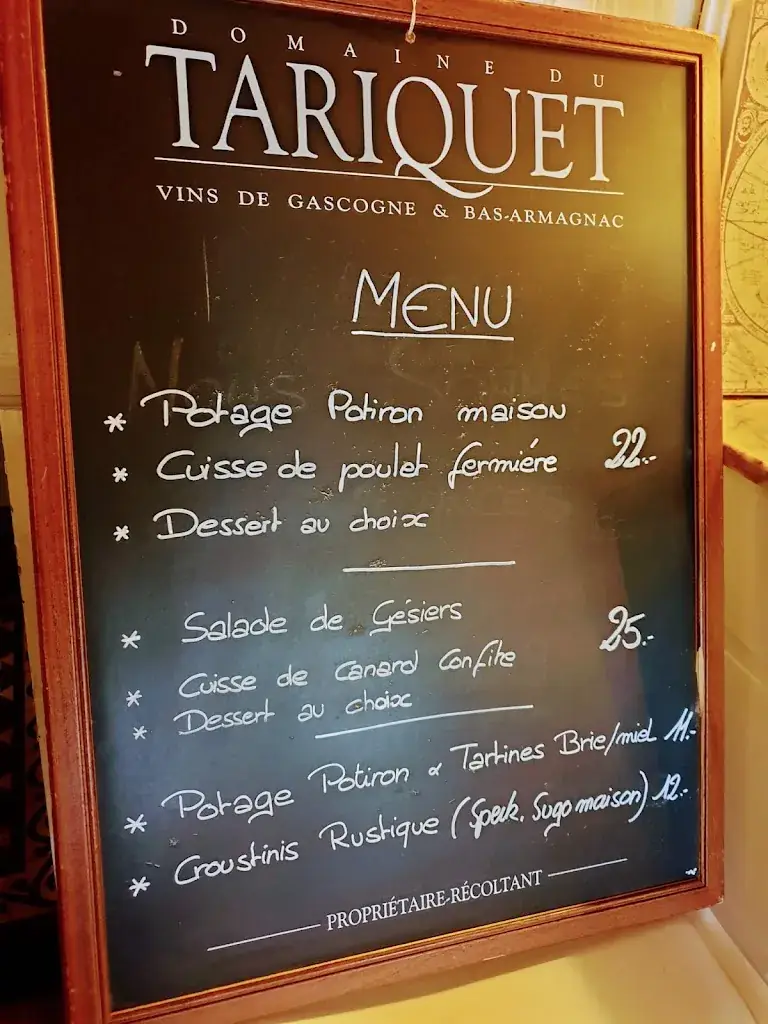 DOMAINE DU
TARIQUET
VINS DE GASCOGNE & BAS-ARMAGNAC
MENU
* Potage Potiron maison
* Cuisse de poulet fermiére 22.-
* Dessert au choix
* Salade de Gésiers
25.-
* Cuisse de Canard Confite
* Dessert au choix
* Potage Potiron & Tartines Brie/miel 11.-
* Croustinis Rustique (Speck, Sugo maison) 12.-
PROPRIÉTAIRE-RÉCOLTANT